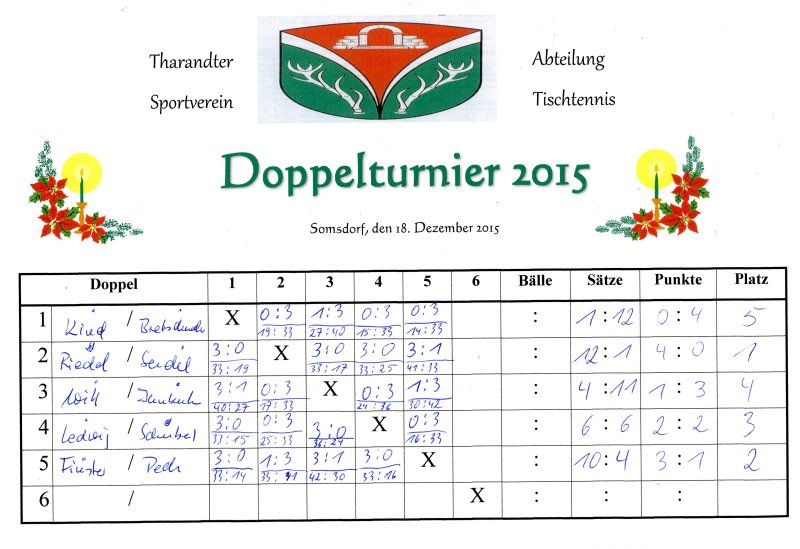 Tharandter Abteilung
Sportverein Tischtennis
Doppelturnier 2015
Somsdorf, den 18. Dezember 2015
Doppel 1 2 3 4 5 6 Bälle Sätze Punkte Platz
1 Kind / X 0:3 1:3 0:3 0:3 : 1:12 0:4 5
19:33 27:40 15:33 14:33
2 Riedel / Seidel 3:0 X 3:0 3:0 3:1 : 12:1 4:0 1
33:19 33:17 33:25 41:33
3 / 3:1 0:3 X 0:3 1:3 : 4:11 1:3 4
40:27 17:33 24:36 30:42
4 Ledwig / 3:0 0:3 3:0 X 0:3 : 6:6 2:2 3
33:15 25:33 36:24 16:33
5 Finster / Pech 3:0 1:3 3:1 3:0 X : 10:4 3:1 2
33:14 33:41 42:30 33:16
6 / X : : :